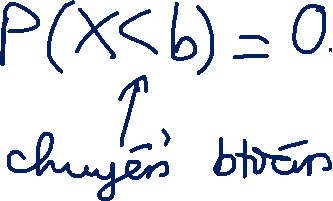 P(X<b) = 0.
chuyển btoán